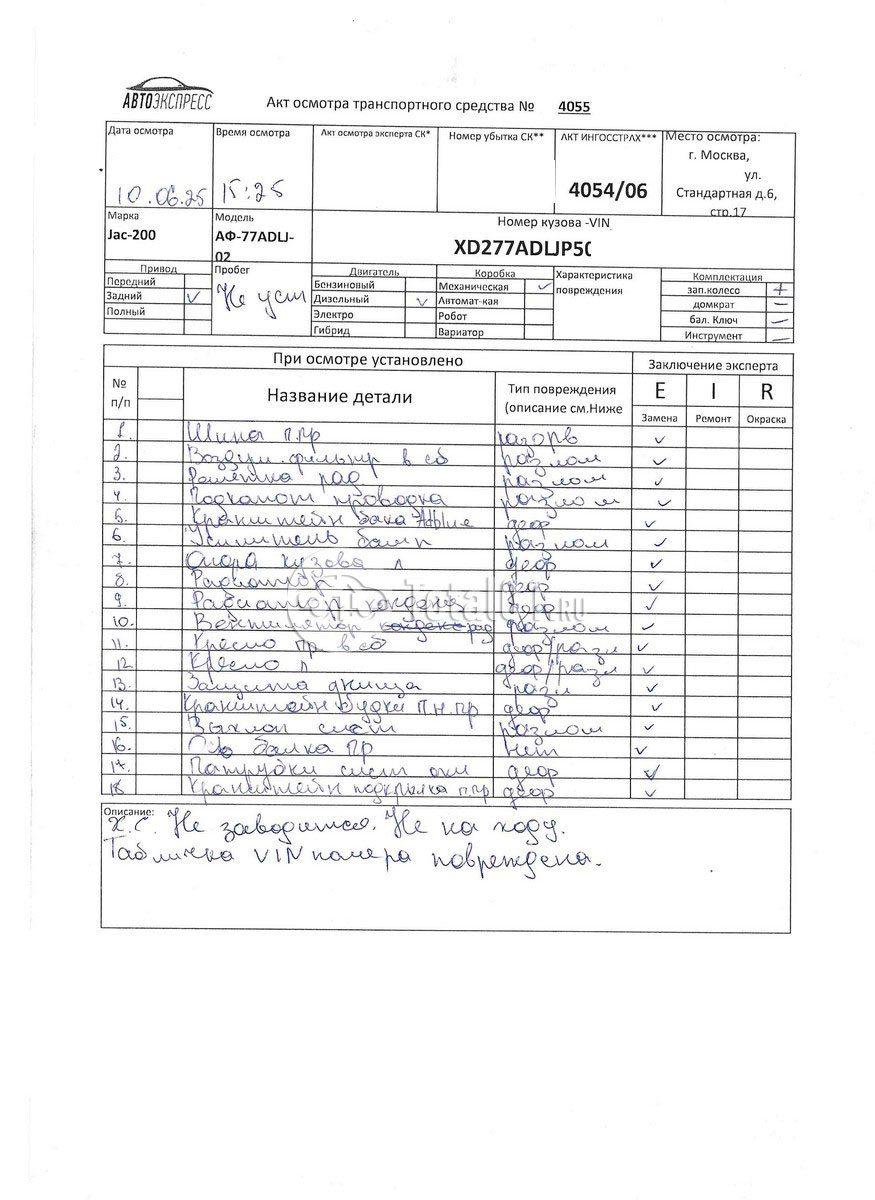 АВТОЭКСПРЕСС
Акт осмотра транспортного средства № 4055
Дата осмотра
10.06.25
Время осмотра
15:25
Акт осмотра эксперта СК*
Номер убытка СК**
АКТ ИНГОССТРАХ***
4054/06
Место осмотра:
г. Москва,
ул.
Стандартная д.6,
стр.17
Марка
Jac-200
Модель
АФ-77ADLJ-
02
Номер кузова -VIN
XD277ADLJP50
Привод
Передний
Задний ✓
Полный
Пробег
Не уст
Двигатель
Бензиновый
Дизельный ✓
Электро
Гибрид
Коробка
Механическая ✓
Автомат-кая
Робот
Вариатор
Характеристика
повреждения
Комплектация
зап.колесо +
домкрат —
бал. Ключ —
Инструмент —
При осмотре установлено
Заключение эксперта
№
п/п
Название детали
Тип повреждения
(описание см.Ниже
E I R
Замена Ремонт Окраска
1. Шина п.пр разорв ✓
2. Воздуш. фильтр в сб разлом ✓
3. Решетка рад разлом ✓
4. Подкапот проводка разлом ✓
5. Кронштейн бака Adblue деф ✓
6. Усилитель бамп разлом ✓
7. Опора кузова л деф ✓
8. Радиатор деф ✓
9. Радиатор конденс деф ✓
10. Вентилятор рад разлом ✓
11. Кресло пр в сб деф/разл ✓
12 Кресло л деф/разл ✓
13. Защита днища разл ✓
14. Кронштейн будки п.н.пр деф ✓
15. Выхлоп сист разлом ✓
16. балка пр нет ✓
17. Патрубки сист охл деф ✓
18 Кронштейн подкрылка п.пр деф ✓
Описание:
Х.С. Не заводится. Не на ходу.
Табличка VIN номера повреждена.
TotalCar.RU